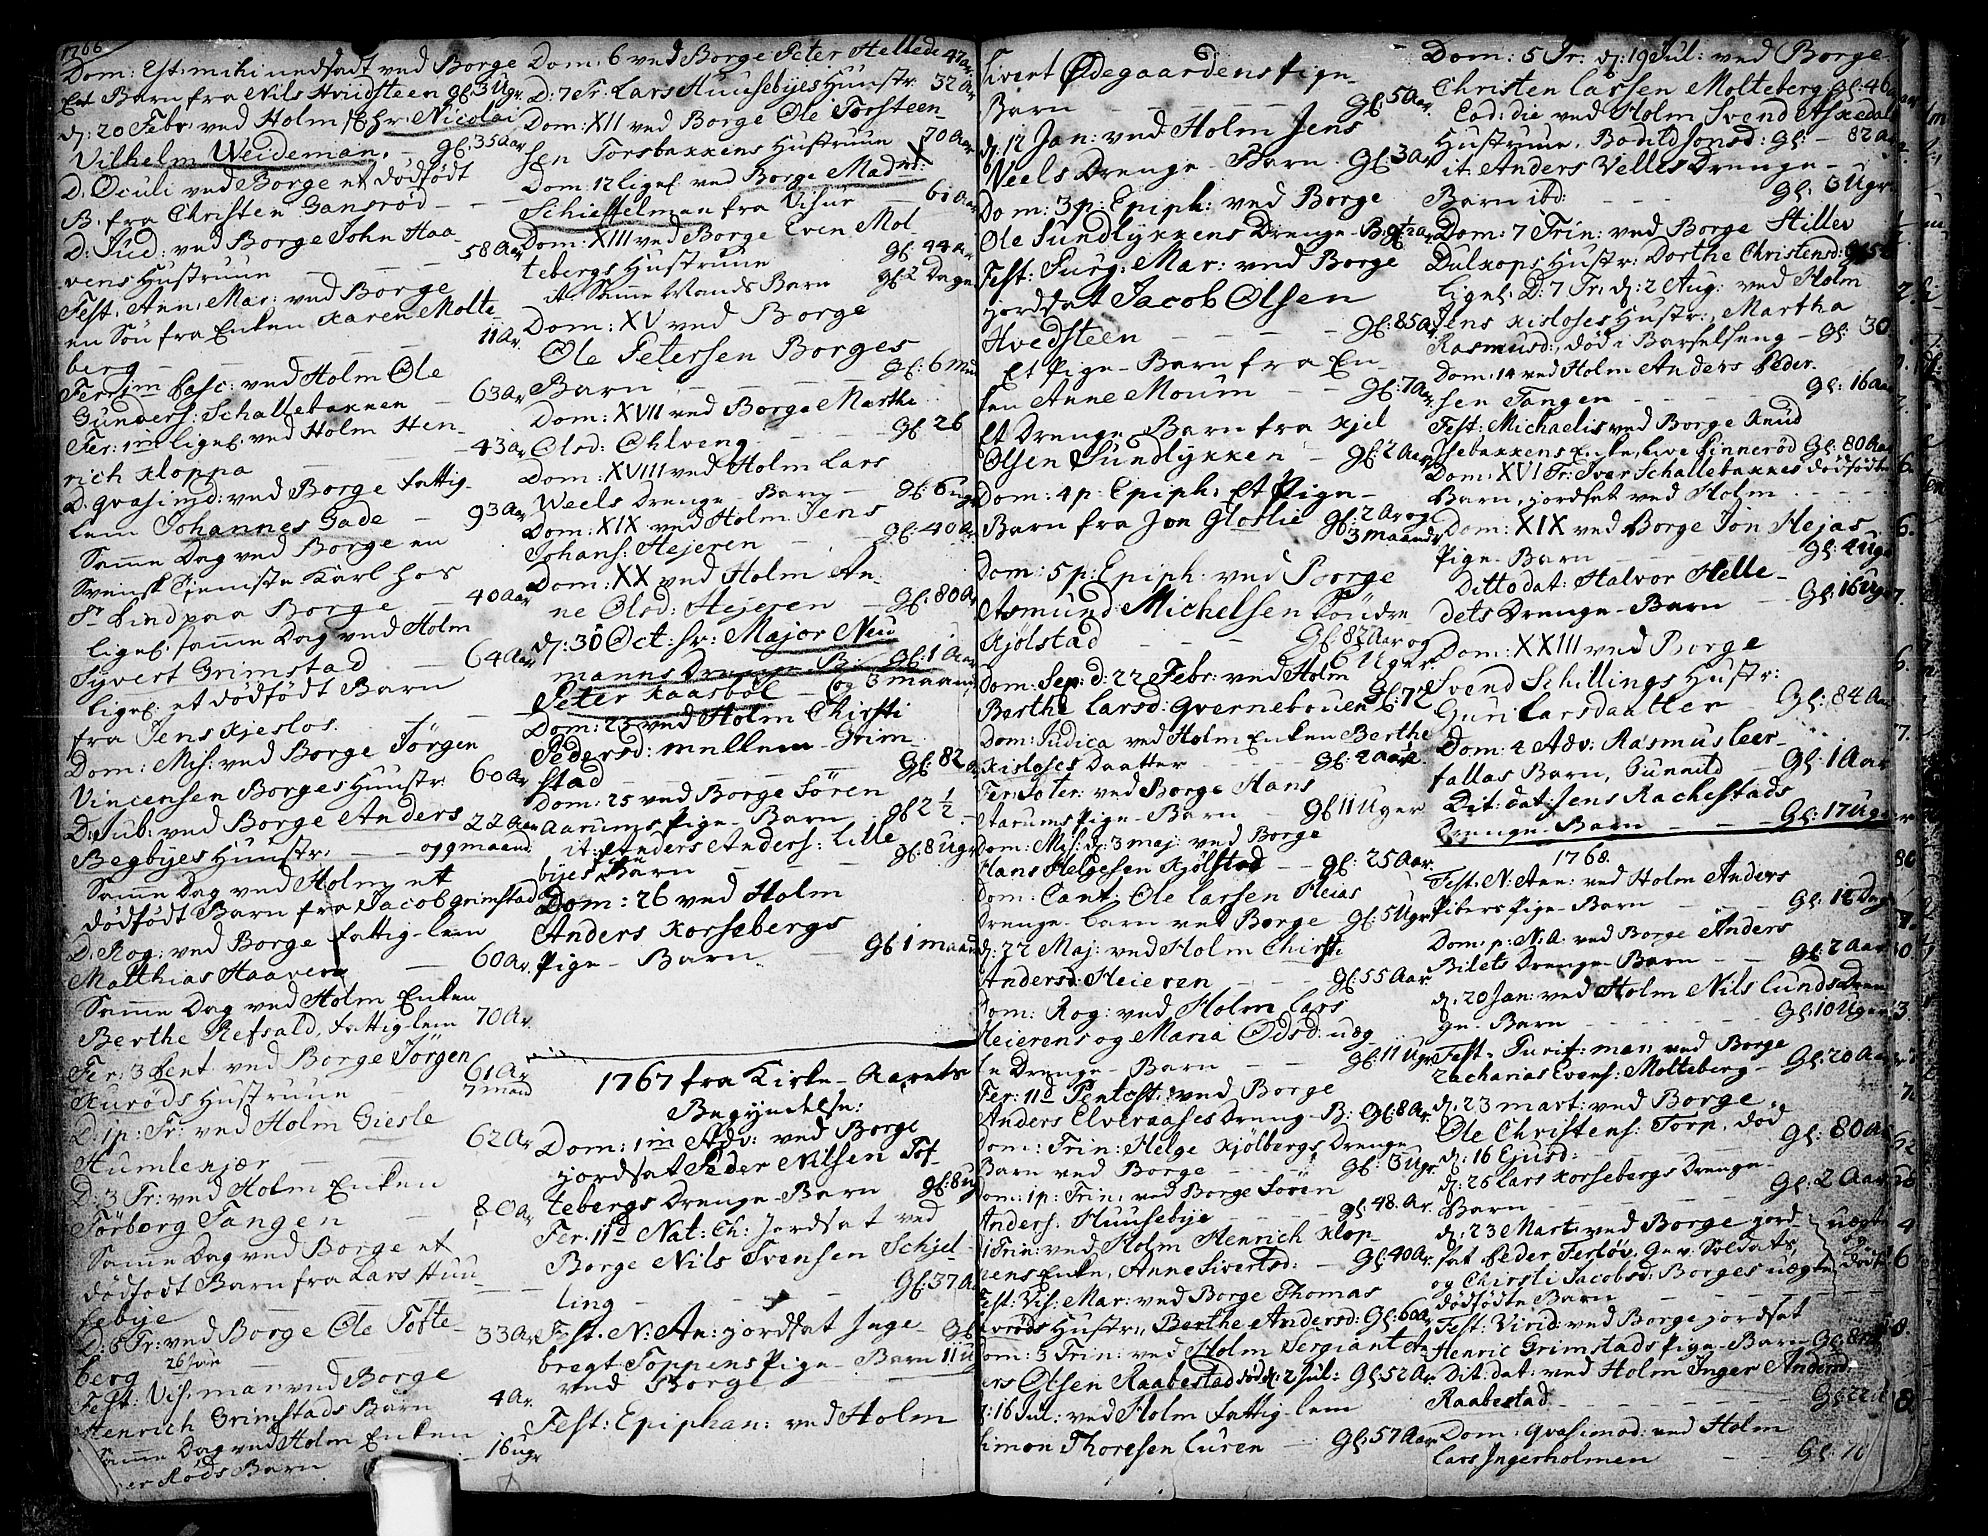 1766
Dom: Est: mihi nedsadt ved Borge
Et Barn fra Nils Hvidsteen Gl: 3 Ugr
d: 20 Febr: ved Holm Hr: Nicolai
Vilhelm Weideman. - gl: 35 Aar
D. Oculi ved Borge et dödfödt
B. fra Christen Gansröd - - -
D: Jud: ved Borge John Haa-
vens Hustruue - - - 58 Aar
Fest: Ann: Mar: ved Borge
en Sön fra Enken Karen Molte-
berg - - - - 11 Ar.
Fer: 1m Pasc: ved Holm Ole
Gunders: Schaltebakken - 63 Ar
Fer: 1m ligel: ved Holm Hen-
rich Kloppa - - - 43 Ar
D. Qvasimd: ved Borge Fattig-
lem Johannes Gade - 93 Ar
Samme Dag ved Borge en
Svensk Tjeniste Karl hos
Sr Lind paa Borge - 40 Aar
ligel: samme Dag ved Holm
Syvert Grimstad - 64 Aar
ligel: et dödfödt Barn
fra Jens Kjeslos. - - -
Dom: Mis: ved Borge Jörgen
Vincensen Borges Huustr: 60 Ar
D: Jub: ved Borge Anders
Begbyes Huustr. - 22 Aar og 9 maand
Samme Dag ved Holm et
dödfödt Barn fra Jacob Grimstad
D. Rog: ved Borge Fattig-lem
Matthias Haaven - 60 Ar.
Samme Dag ved Holm Enken
Berthe Refsald, Fattiglem 70 Ar.
Fer: 3 Pent: ved Borge Jörgen
Kuröds Hustruue - 61 Ar 7 maand
D: 1 p: Tr: ved Holm Giesle
Humlekjær - - 62 Ar
D: 3 Tr: ved Holm Enken
Törborg Tangen - 80 Ar
Samme Dag ved Borge et
dödfödt Barn fra Lars Huu-
sebye - - - -
D: 6 Tr: ved Borge Ole Tofte-
berg - - - 33 Ar
26 Jun
Fest: Vis: mar: ved Borge
Henrich Grimstads Barn 4 Ar.
Samme Dag ved Holm Enken
Röds Barn - 16 ugr
Dom: 6 ved Borge Peter Hellede 47 ar
D: 7 Tr: Lars Huusebyes Huustr: 32 Ar
Dom: XII ved Borge Ole Torsteen-
sen Torsbakkens Hustruue 70 Aar
Dom: 12 ligel ved Borge Madme:
Schieftelman fra Visur - 60 Aar
Dom: XIII ved Borge Even Mol-
tebergs Hustruue - gl: 44 ar
it: Samme Mands Barn gl: 2 Dage
Dom: XV ved Borge
Ole Petersen Borges
Barn - - - gl: 6 Mn
Dom: XVII ved Borge Marthe
Olsd: Ohlveng - - gl: 26
Dom: XVIII ved Holm Lars
Weels Drenge-Barn - gl: 6 ugr
Dom: XIX ved Holm Jens
Johans: Hejeren - gl: 40 Ar
Dom: XX ved Holm An-
ne Olsd: Hejeren - gl: 80 Ar
d: 30 Oct: Hr: Major Neu
manns Drenge-B: gl: 1 Aar
Peter Kaasböl - og 3 maan
Dom: 23 ved Holm Chirsti
Pedersd: mellem Grim-
stad - - - Gl: 82
Dom: 25 ved Borge Sören
Aarums Pige-Barn - gl 2 1/2
it: Anders Anders: Lille
byes Pige Barn - gl: 8 Ugr
Dom: 26 ved Holm
Anders Korsebergs
Pige-Barn. - gl 1 maan
1767 fra Kirke-Aarets
Begyndelse:
Dom: 1m Adv: ved Borge
jordsat Peder Nilsen Tof-
tebergs Drenge-Barn gl: 8 ug
Fer: 11d Nat: Ch: jordsat ved
Borge Nils Svensen Schjel-
ling - - - Gl: 37 A
Fest: N: An: jordsat Inge-
bregt Toppens Pige-Barn 11 u
ved Borge
Fest: Epiphan: ved Holm
Sivert Ødegaardens Pige-
Barn - - - Gl: 5 Aar.
d: 12 Jan: ved Holm Jens
Veels Drenge-Barn. Gl: 3 Ar
Dom: 3 p: Epiph: ved Borge
Ole Sundlykkens Drenge-B: gl 1/2 ar
Fest: Purg: Mar: ved Borge
jordsat Jacob Olsen
Hvedsteen - - - gl: 85 Ar
Et Pige-Barn fra En-
ken Anne Moum - - gl: 7 Ar
Et Drenge Barn fra Kjel
Olsen Sundlykken - gl: 2 Aar
Dom: 4 p: Epiph: Et Pige-
Barn fra Jon Gloslie gl: 2 Ar og 3 maand
Dom: 5 p: Epiph: ved Borge
Asmund Michelsen Söndre
Kjölstad - - gl 82 Aar og 6 Uger.
Dom: Sep: d: 22 Febr: ved Holm
Berthe Larsd: Qvernebouen gl: 72
Dom: Judica ved Holm Enken Berthe
Kisloses Daatter - - gl: 2 aar
Fer: Soter: ved Borge Hans
Aarums Pige-Barn - gl 11 Uger
Dom: Mis: d: 3 maj: ved Borge
Hans Helgesen Kjölstad - gl: 25 Aar.
Dom: Cant: Ole Larsen Heias
Drenge-Barn ved Borge gl: 5 Ugr
d: 22 Maj: ved Holm Chirsti
Andersd: Heieren - - gl: 55 Aar
Dom: Rog: ved Holm Lars
Heierens og Maria Odsd: uæg-
te Drenge-Barn - - gl: 11 Ugr
Fer: 11d Pentost: ved Borge
Anders Elveraases Dreng-B: gl: 8 Ar
Dom: Trin: Helge Kjölbergs Drenge
Barn ved Borge - - gl: 3 Ugr
Dom: 1 p: Trin: ved Borge Sören
Anders. Huusebye - - gl: 48 Ar.
Trin: ved Holm Henrich Klop-
pens Enke, Anne Sivertsd: - gl: 40 Ar
Fest: Vis: Mar: ved Borge Thomas
Huröds Hustr:, Berthe Andersd: Gl: 60 Ar
Dom: 3 Trin: ved Holm Sergiant An
ders Olsen Raabestad död d: 2 Jul: Gl: 52 Ar
d: 16 Jul: ved Holm Fattig-lem
Simon Thoresen Curen - Gl: 57 Aar
Dom: 5 Tr: d: 19 Jul: ved Borge
Christen Larsen Molteberg Gl: 46 Aar
Eod: die ved Holm Svend Askedals
Hustruue, Bonild Jonsd: gl: - 82 Ar
it: Anders Velles Drenge-
Barn ibd: - - - Gl: 3 Ugr
Dom: 7 Trin: ved Borge Hillev
Dulkops Hustr: Dorthe Christensd: gl 58
ligel: D: 7 Tr: d: 2 Aug: ved Holm
Jens Kisloses Hustr:, Martha
Rasmusd:, död i Barselseng - gl: 30
Dom: 14 ved Holm Anders Peder-
sen Tangen - - - - gl: 16 aar
Fest: Michaelis ved Borge Knud
Isebakkens Enke, Live Sinneröd Gl: 80 Aar
Dom: XVI Tr: Iver Schaltebakkes dödfödte
Barn, jordsat ved Holm - - - -
Dom: XIX ved Borge Jon Hejas
Pige-Barn - - - Gl: 4 Ugr
Dito dat: Halvor Helle-
dets Drenge-Barn - Gl: 16 Ugr
Dom: XXIII ved Borge
Svend Schillings Hustr:
Guri Larsdaatter - Gl: 84 Aar
Dom: 2 Adv: Rasmus Leer-
fallas Barn, Gunnild - Gl: 1 Aar
Dit: dat: Jens Rachestads
Drenge-Barn - - - Gl: 17 Uger
1768.
Fest: N: Ann: ved Holm Anders
Pibers Pige-Barn - - - Gl: 18 Dag
Dom: p: N: A: ved Borge Anders
Bilets Drenge-Barn - - Gl: 2 Aar
d: 20 Jan: ved Holm Nils Lunds Dren
ge-Barn - - - - Gl: 10 Uger
Fest: Purif: mar: ved Borge
Zacharias Evens: Molteberg - Gl: 20 Aar
d: 23 mart: ved Borge
Ole Christens: Torp, död
d: 16 Ejusd: - - Gl: 80 Ar
d: 26 Lars Korsebergs Drenge-
Barn - - - - Gl: 2 Aar
d: 23 Mart: ved Borge jord-
sat Peder Terlöv, Gev: Soldats,
og Chirsti Jacobsd: Borges uægte
dödfödte Barn - - - uægte og dödf
Fest: Virid: ved Borge jordsat
Henric Grimstads Pige-Barn Gl: 8
Dit: dat: ved Holm Inger Andersd:
Raabestad - - - - Gl: 22
Dom: Qvasimod: ved Holm
Lars Ingerholmen - - Gl: 70